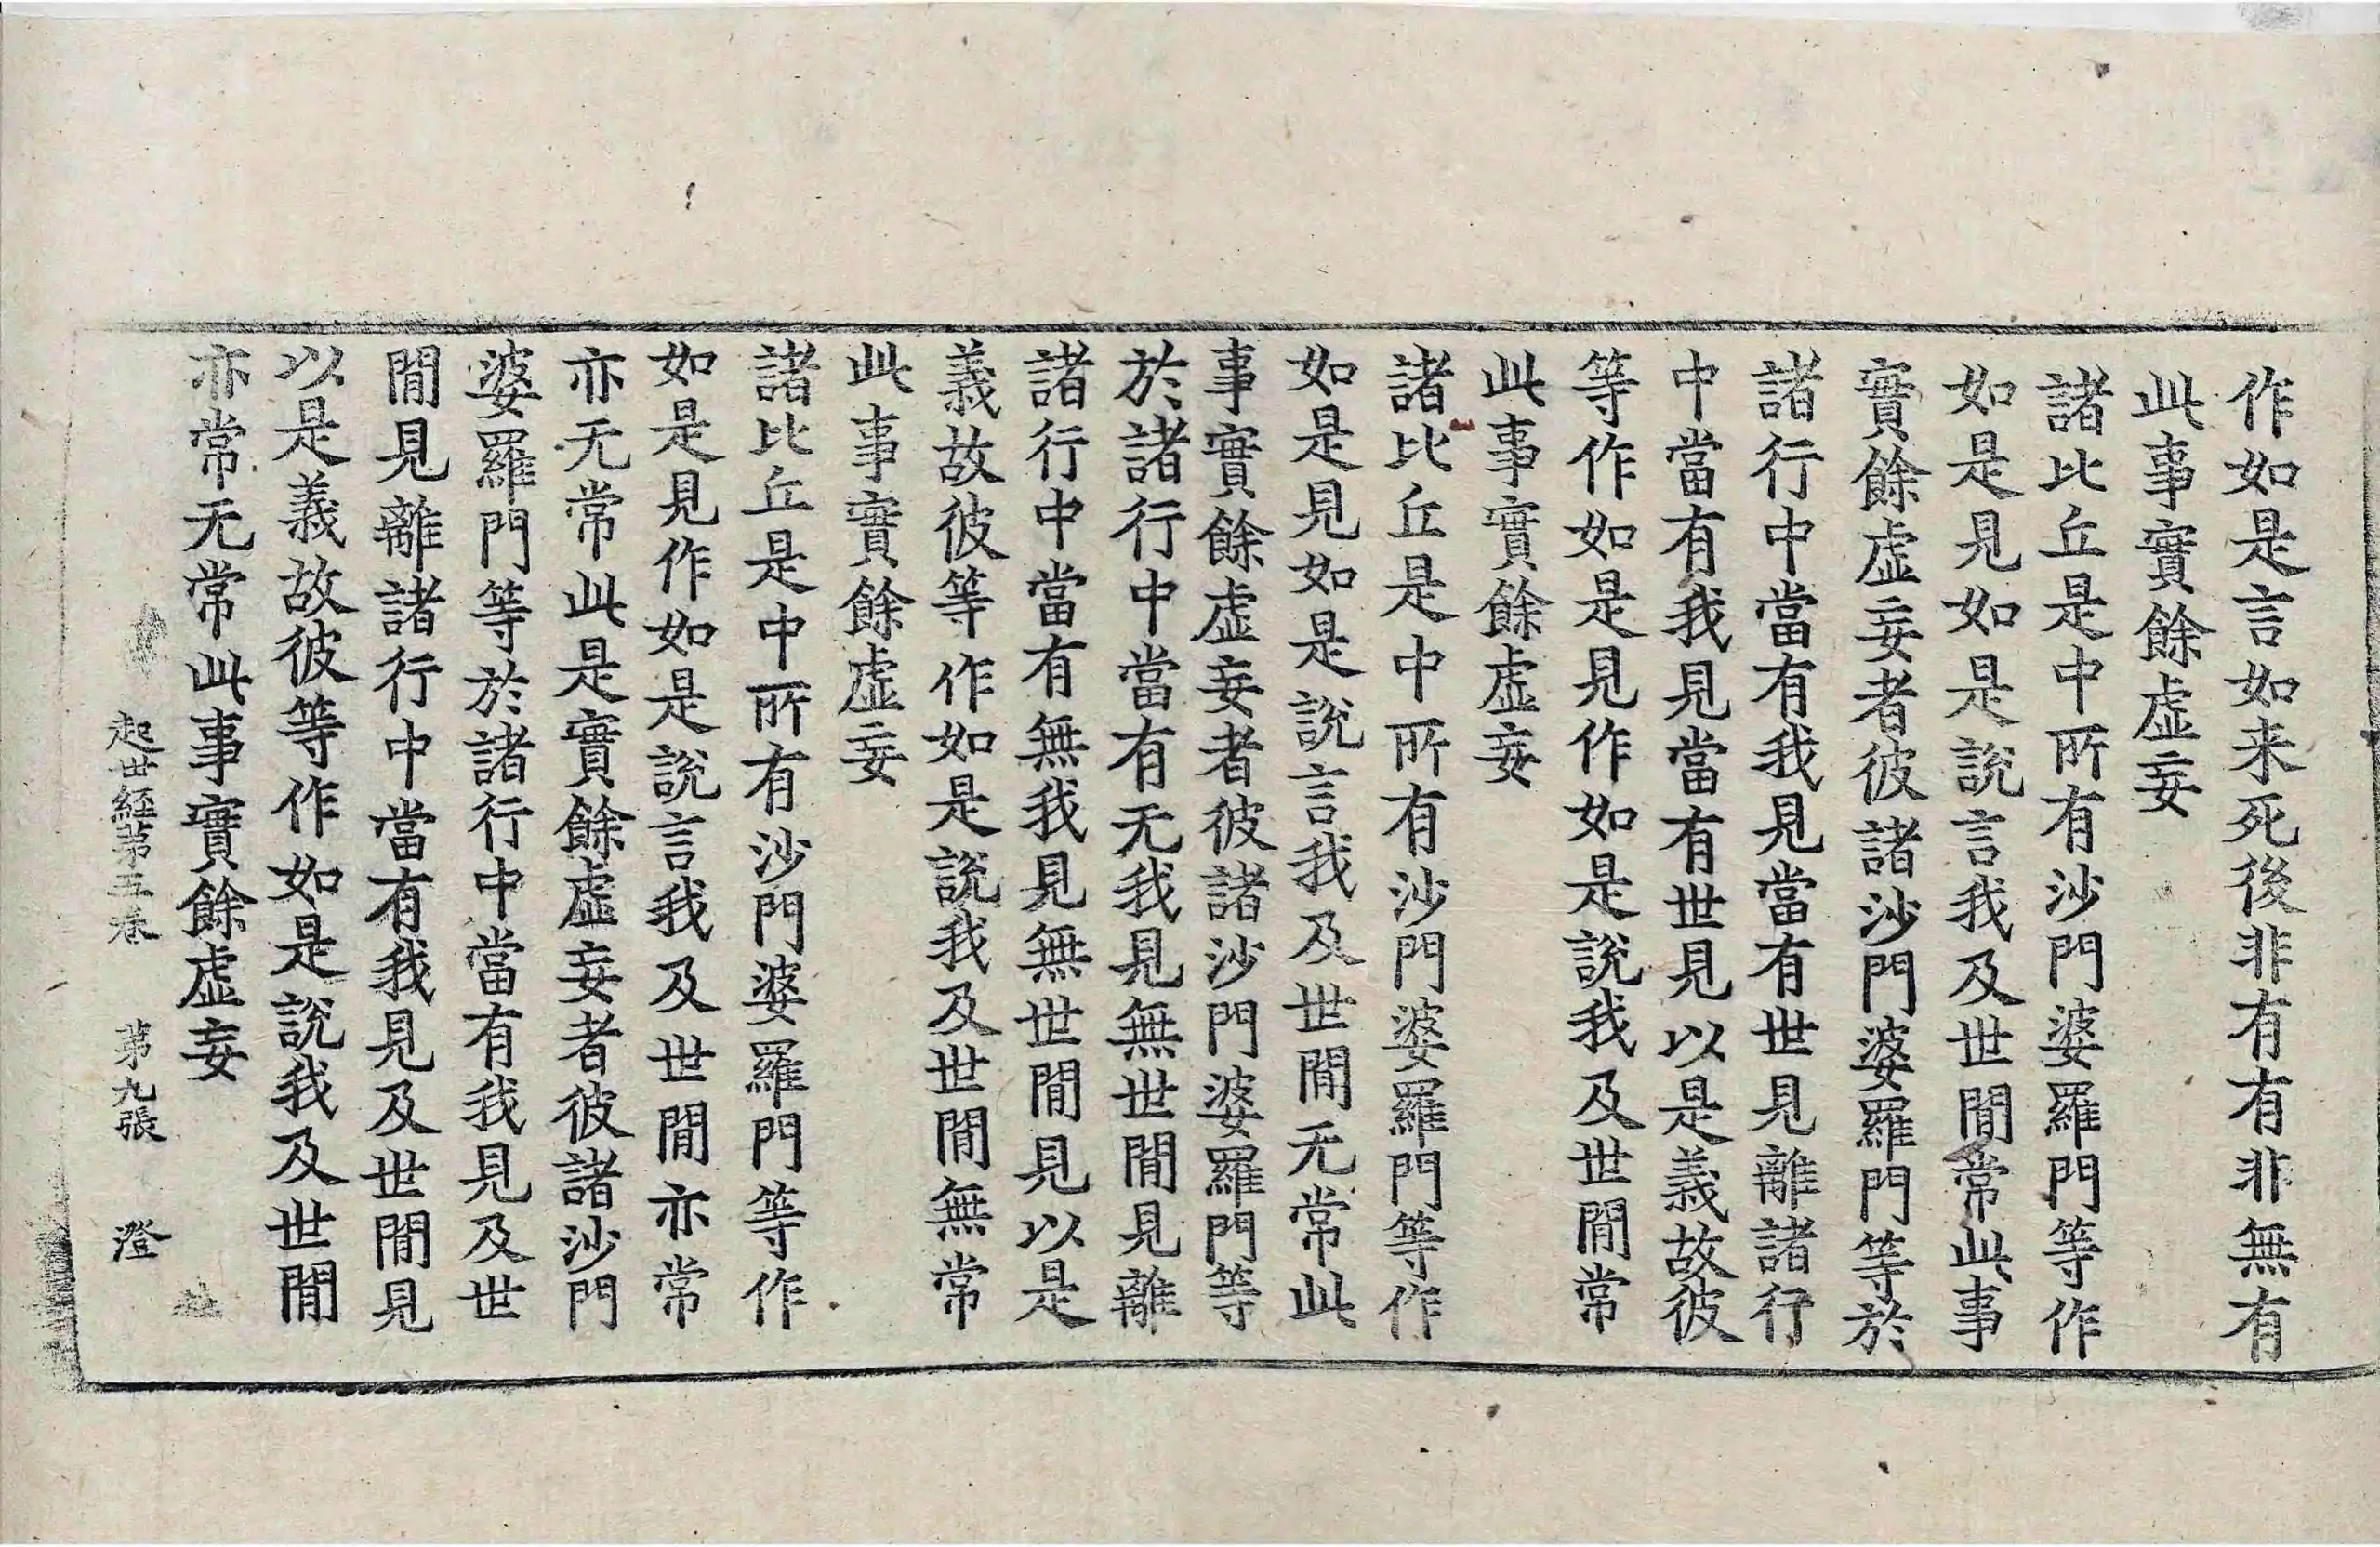 作如是言如来死後非有有非無有
此事實餘虛妄
諸比丘是中所有沙門婆羅門等作
如是見如是說言我及世間常此事
實餘虛妄者彼諸沙門婆羅門等於
諸行中當有我見當有世見離諸行
中當有我見當有世見以是義故彼
等作如是見作如是說我及世間常
此事實餘虛妄
諸比丘是中所有沙門婆羅門等作
如是見如是說言我及世間无常此
事實餘虛妄者彼諸沙門婆羅門等
於諸行中當有无我見無世間見離
諸行中當有無我見無世間見以是
義故彼等作如是說我及世間無常
此事實餘虛妄
諸比丘是中所有沙門婆羅門等作
如是見作如是說言我及世間亦常
亦无常此是實餘虛妄者彼諸沙門
婆羅門等於諸行中當有我見及世
間見離諸行中當有我見及世間見
以是義故彼等作如是說我及世間
亦常无常此事實餘虛妄
起世經第五卷 第九張 澄